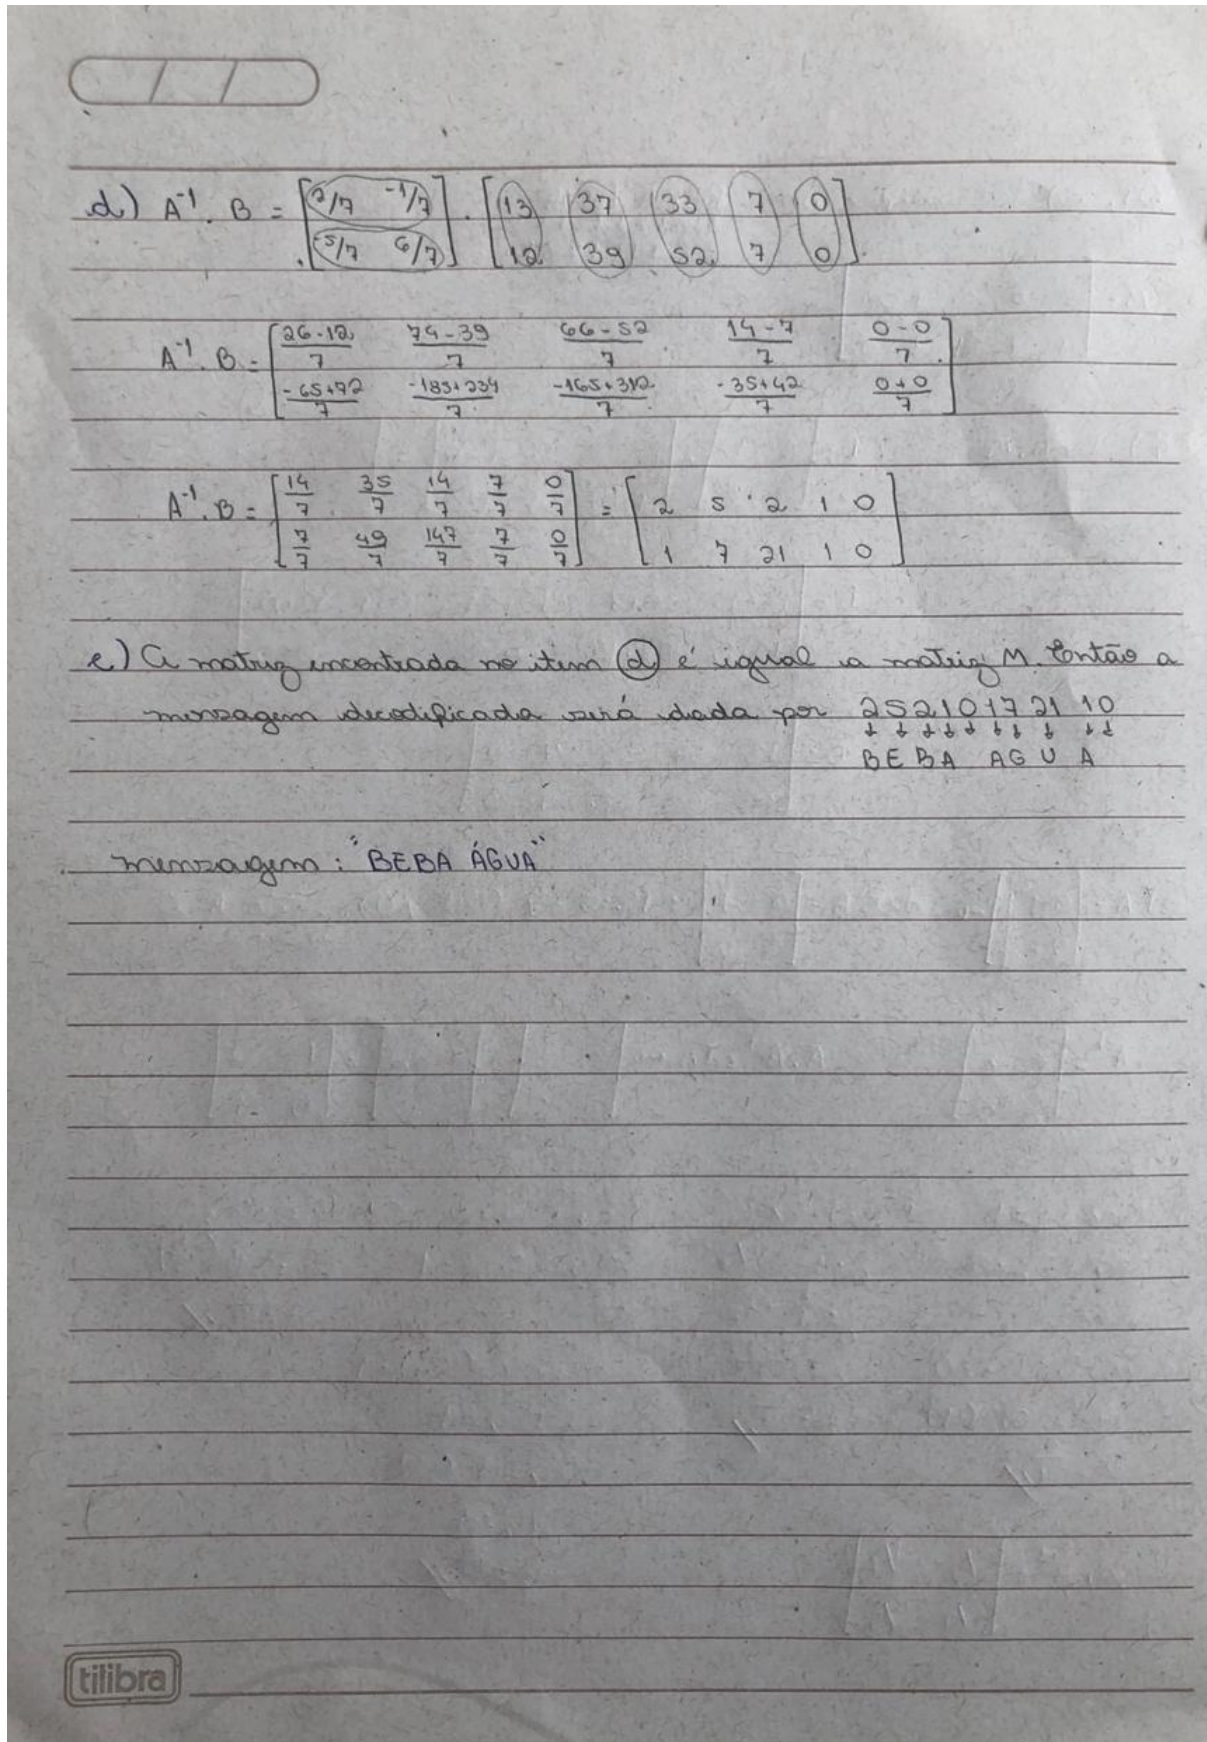 d) A⁻¹. B = [2/7 -1/7] . [13 37 33 7 0]
[-5/7 6/7] [12 39 52 7 0].
A⁻¹. B = [(26-12)/7 (74-39)/7 (66-52)/7 (14-7)/7 (0-0)/7]
[(-65+72)/7 (-185+234)/7 (-165+312)/7 (-35+42)/7 (0+0)/7]
A⁻¹. B = [14/7 35/7 14/7 7/7 0/7] = [2 5 2 1 0]
[7/7 49/7 147/7 7/7 0/7] [1 7 21 1 0]
e) A matriz encontrada no item (d) é igual a matriz M. Então a
mensagem decodificada será dada por 2 5 2 1 0 1 7 21 1 0
↓ ↓ ↓ ↓ ↓ ↓ ↓ ↓ ↓ ↓
B E B A A G U A
mensagem: "BEBA ÁGUA"
tilibra